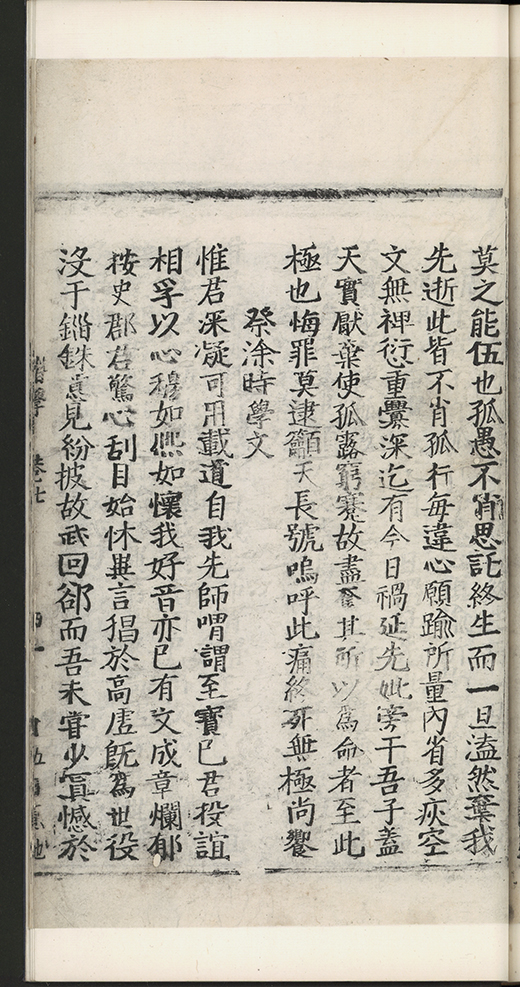 莫之能伍也孤愚不肖思託終生而一旦溘然棄我
先逝此皆不肖孤行每違心願踰所量內省多疚空
文無裨衍重釁深迄有今日禍延先妣旁干吾子蓋
天實厭棄使孤露窮蹇故盡奪其所以為命者至此
極也悔罪莫逮籲天長號嗚呼此痛終死無極尚饗
祭涂時學文
惟君深凝可用載道自我先師喟謂至寶已君投誼
相孚以心穆如熈如懷我好音亦已有文成章爛郁
按史郡君驚心刮目始休無言猖於高虗旣為世役
沒于錙銖意見紛披故武回郤而吾未嘗少寘憾於
卷七